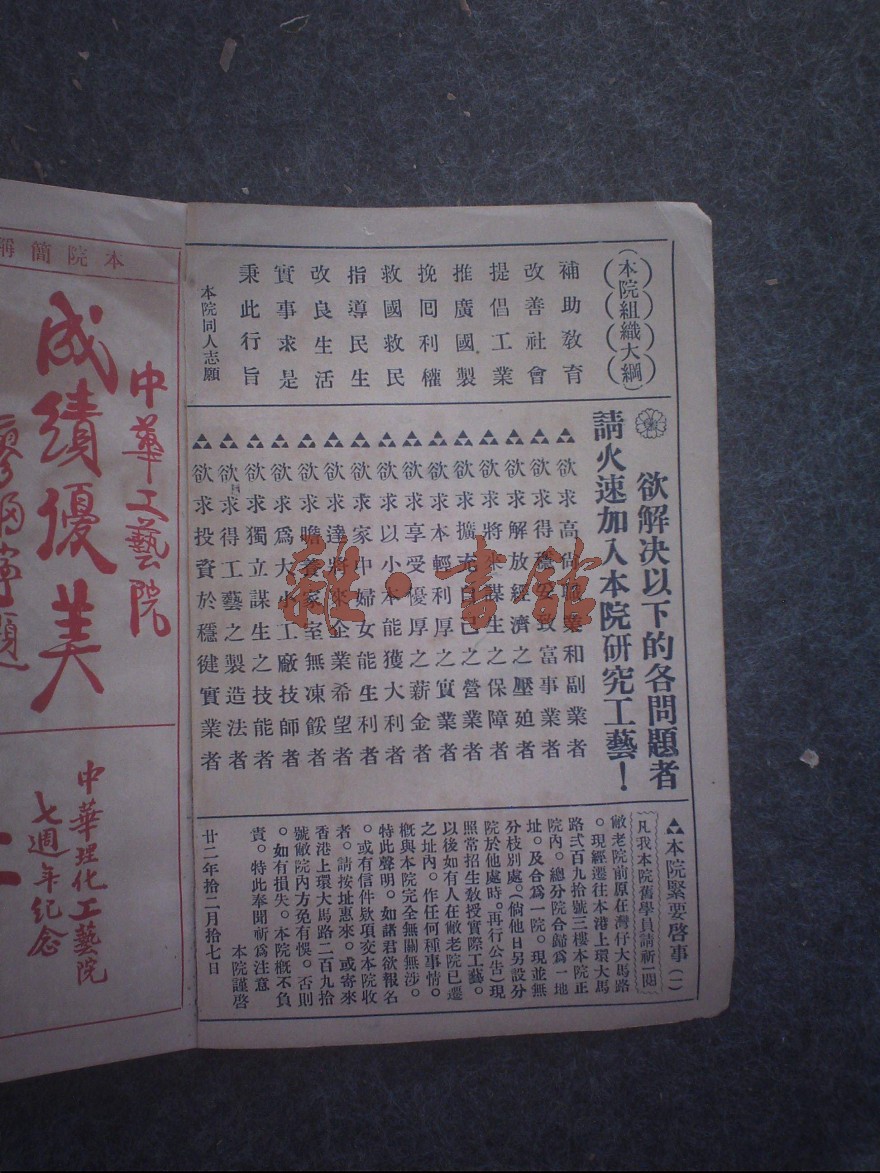 (本院組織大綱)
補助教育
改善社會
提倡工業
推廣國製
挽回利權
救國救民
指導民生
改良生活
實事求是
秉此行旨
本院同人志願
欲解决以下的各問題者
請火速加入本院研究工藝！
欲求高尚職業和副業者
欲求得穩安致富事業者
欲求解放經濟之壓廹者
欲求將來謀生之保障者
欲求擴充自己之營業者
欲求本輕利厚之實業者
欲求享受優厚之薪金者
欲求以小本能獲大利者
欲求家中婦女能生利者
欲求達將來企業希望者
欲求贍養家室無凍餒者
欲求爲大小工廠技師者
欲求獨立謀生之技能者
欲求得工藝之製造法者
欲求投資於穩健實業者
本院緊要啓事(一)
凡我本院舊學員請祈一閱
敝老院前原在灣仔大馬路
。現經遷往本港上環大馬
路弍百九拾號三樓本院正
院內。總分院合歸爲一地
址。及合爲一院。現並無
分枝別處。(倘他日另設分
院於他處時。再行公告)現
照常招生敎授實際工藝。
以後如有人在敝老院已遷
之址內。作任何種事情。
概與本院完全無關無涉。
特此聲明。如諸君欲報名
。或有信件欵項交本院收
者。請按址惠來。或寄來
香港上環大馬路二百九拾
號敝院內方免有悞。否則
。如有損失。本院概不負
責。特此奉聞祈爲注意
本院謹啓
廿二年拾二月拾七日
本院簡稱
中華工藝院
成績優美
題
中華理化工藝院
七週年紀念
雜·書館